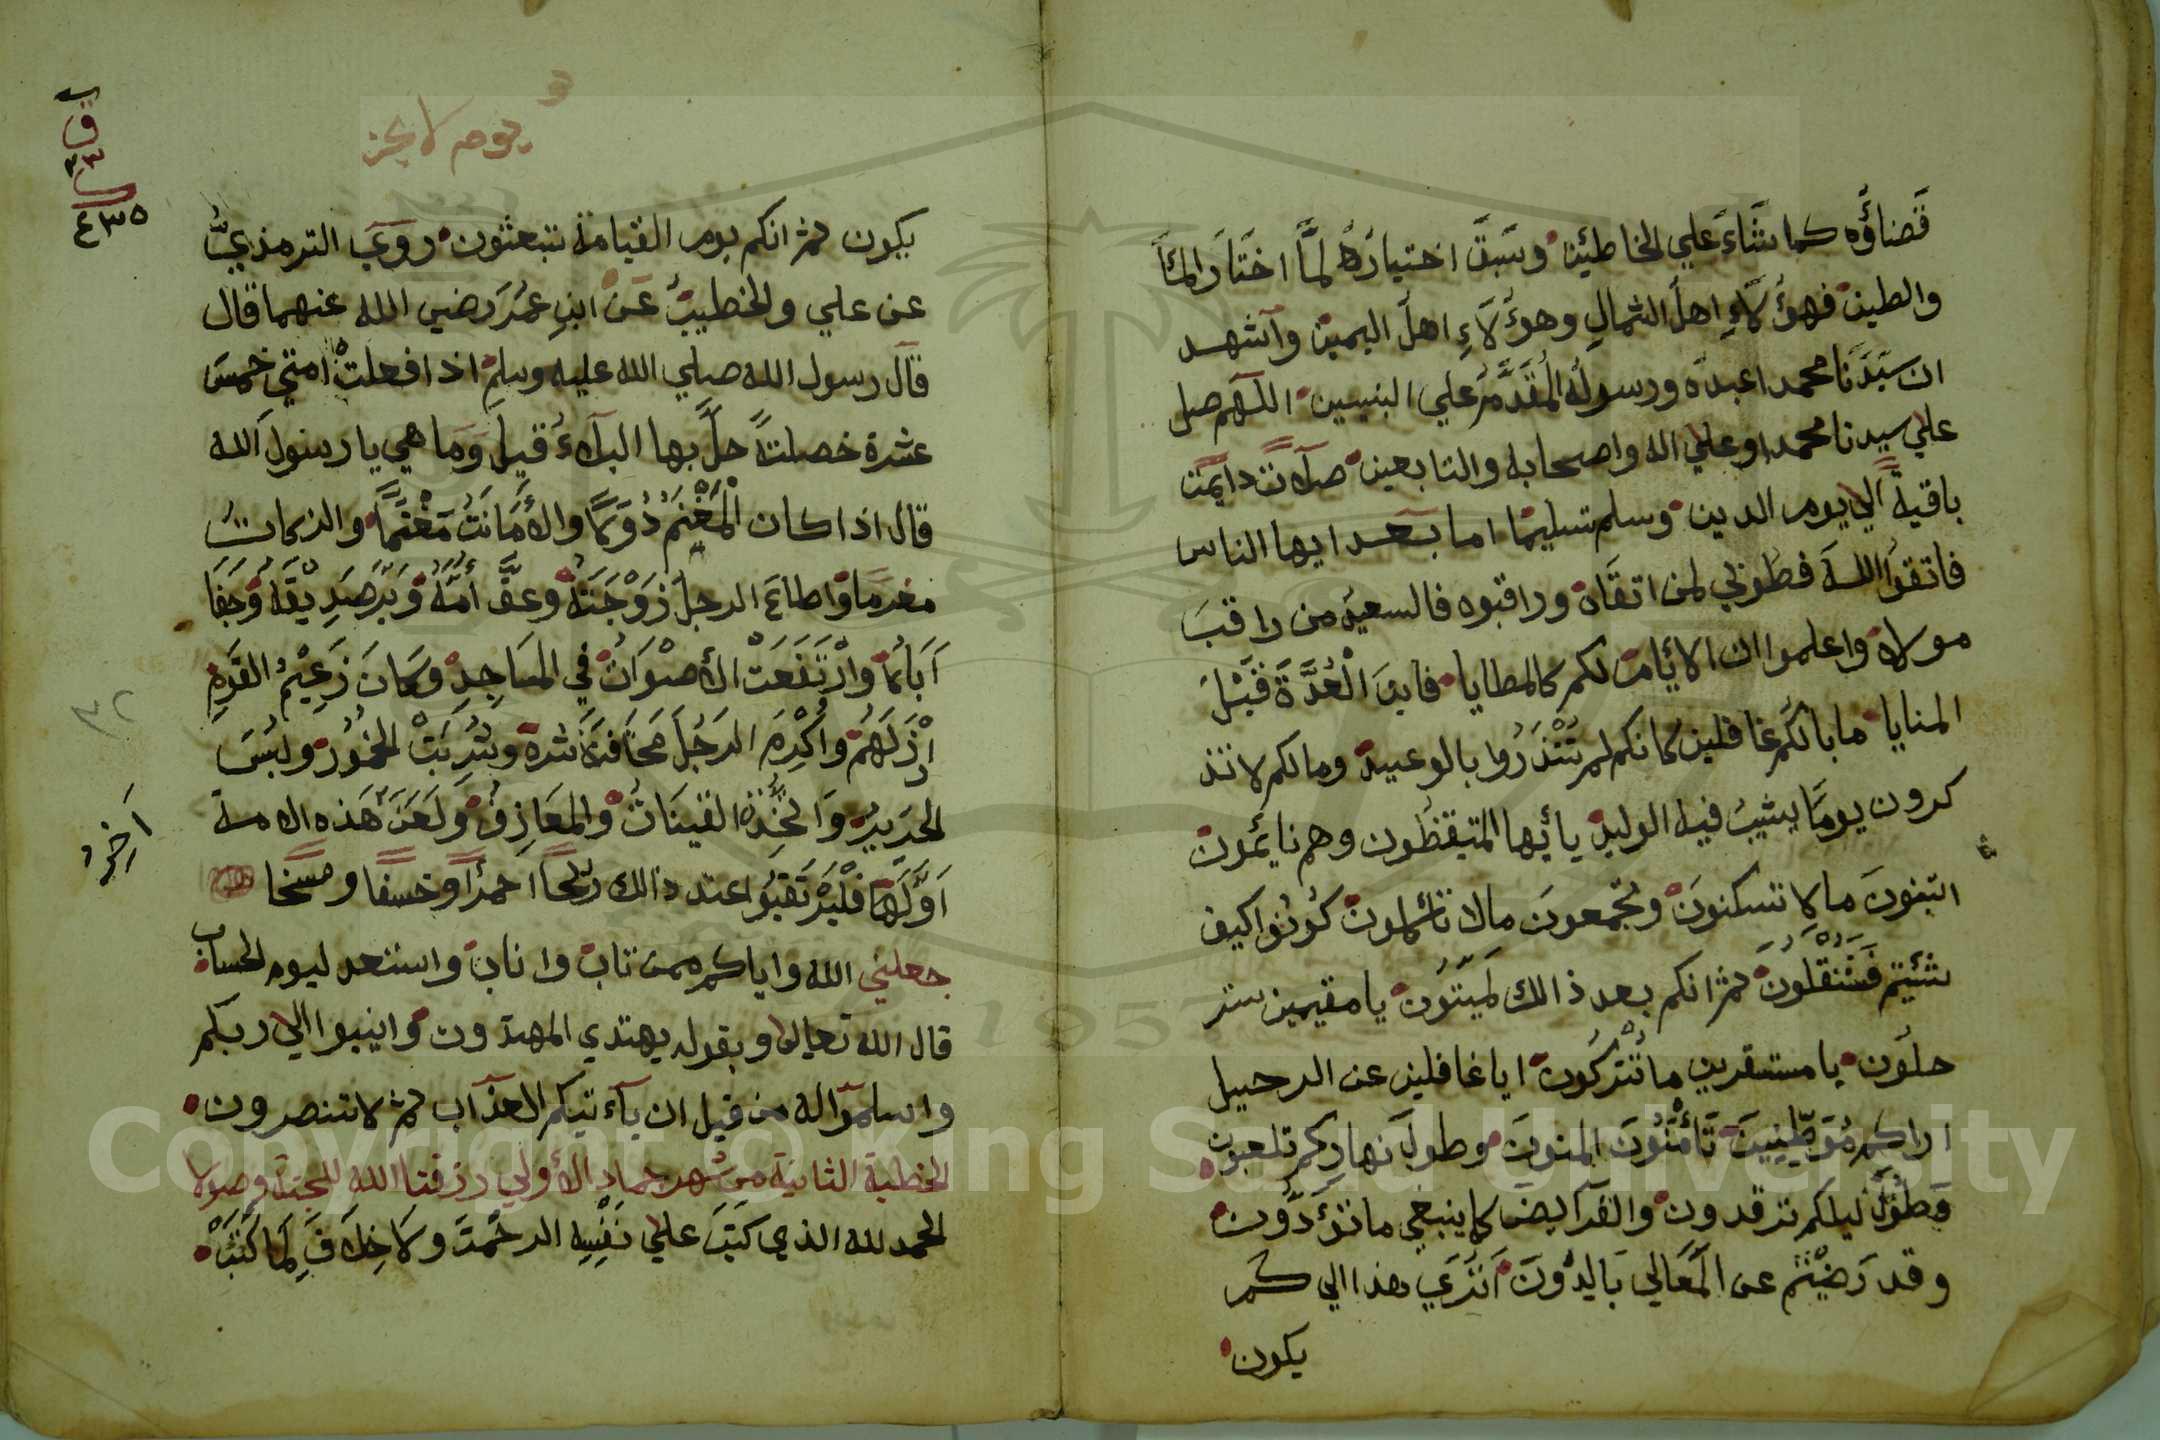 قَضاؤُه كما شَاءَ علي الخاطئين وسَبَقَ اختيارُهُ لمَّا اختَارَ الماَ
والطين فهؤُلَاءِ اهلَ الشمالِ وهؤُلَاءِ اهلَ اليمين وآشهد
ان سَيّدَنا محمدا عبدُه ورسولُه المُقَدَّمُ علي النبيين اللهم صل
علي سيدنا محمد وعلي اله واصحابه والتابعين صلاةً دايمةً
باقيةً الي يوم الدين وسلم تسليما اما بعد ايها الناس
فاتقوا اللهَ فطُوبي لمن اتقَاهُ وراقبوه فالسعيد من راقبَ
مولاه واعلموا ان الايَّامَ لكم كالمطايا فاين الْعُدَّةَ قَبْلَ
المنايا ما بالكُم غافلين كانكم لم تُنْذَرُوا بالوعيد ومالكم لا تتذ
كرون يومًا يشيبُ فيه الوليد يا أيها المتيقظُون وهم نايمُون
اتبنونَ ما لا تسكنونَ وتجمعونَ مالا تاكلون كُونُوا كيف
شئيتم فَسَتُنْقَلُونَ ثم انكم بعد ذالك لَميّتُون يا مقيمين ستر
حلُون يا مستقرين ما تُتْرَكُون ايا غافلين عن الرحييل
اراكم مُوَطِّنِينَ تَأْمَنُونَ المنونَ وطولَ نهارِكم تلعبون
وطُولَ ليلكم ترقدون والفرآيضَ كما ينبغي ما تؤَدُّون
وقد رَضيْتُم عن المَعَالي بَالدُّونَ اتَرَي هذا الي كم
يكون
و
يوم لا يجز
ب
ق
٣٣
٤٣٥
يكون ثم انكم يوم القيامة تبعثون روَي الترمذيُّ
عن علي والخطيبُ عَن ابنِ عُمَرَ رضي الله عنهما قال
قال رسول الله صلي الله عليه وسلم اذا فعلتْ امتي خمسَ
عشرة خصلتاً حلَّ بها البلاءُ قيلَ وَما هي يا رسولَ الله
قال اذا كان الْمَغْنَمُ دُوَلًا والأَمَانَتُ مَغْنَمًا والزكاتُ
مغرمًا واطاعَ الرجلُ زَوْجَتَهُ وعقَّ أُمَّهُ وَبَرَّ صَدِيْقَهُ وَجَفَا
آَبَاهُ وارْتَفَعَتْ الأصْوَاتُ في المسَاجِدِ وكانَ زَعِيْمُ القَومِ
اَرْذَلَهُمْ واُكْرِمَ الرَجُلَ مَخَافَةَ شره وشُرِبَتْ الخمُورُ ولبُسَ
الحَريرُ وَاتخُّذة القينَاتُ والمعَازِفُ ولَعَنَ هَذه الامة
اَوَّلَهَا فلْيَرْتَقبُوا عند ذالك ريحًا احمرًا وخسفًا ومسخًا
جعلني الله واياكم ممن تاب واناب واستعد ليوم الحساب
قال الله تعالي وبقوله يهتدي المهتدون وانيبوا الي ربكم
واسلموا له من قبل ان يآءتيكم العذآب ثم لا تنصرون
الخطبة الثانية من شهر جماد الأولي رزقنا الله للجنة وصولا
الحمد لله الذي كَتَبَ علي نَفْسِه الرحمَتَ ولَا خِلَافَ لِمَا كَتَبْ
٣٢
آخِرُ
Copyright © King Saud University
1957